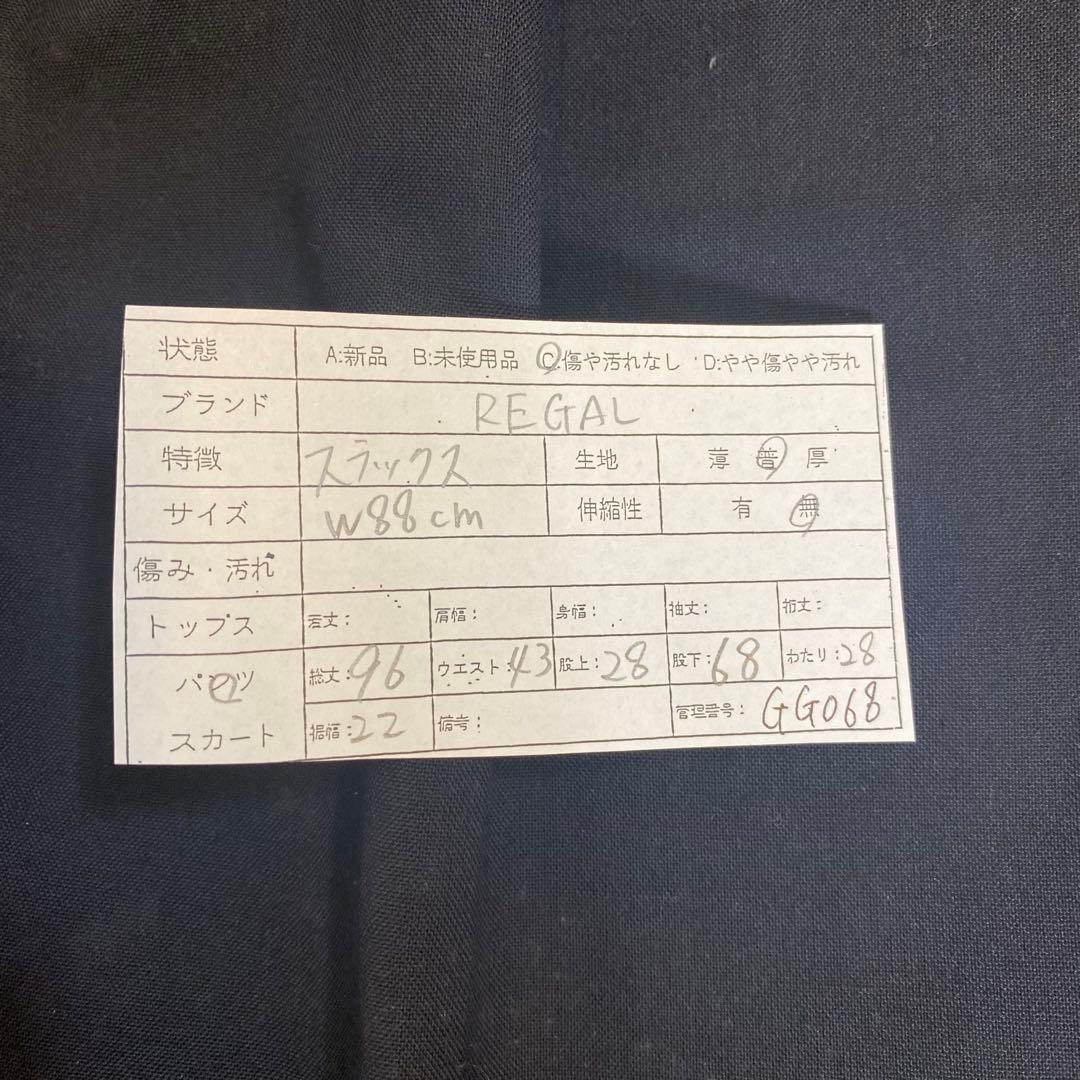 状態 A:新品 B:未使用品 C:傷や汚れなし D:やや傷やや汚れ
ブランド REGAL
特徴 スラックス 生地 薄 普 厚
サイズ W88cm 伸縮性 有 無
傷み・汚れ
トップス 着丈: 肩幅: 身幅: 袖丈: 裄丈:
パンツ 総丈:96 ウエスト:43 股上:28 股下:68 わたり:28
スカート 裾幅:22 備考: 管理番号:GG068